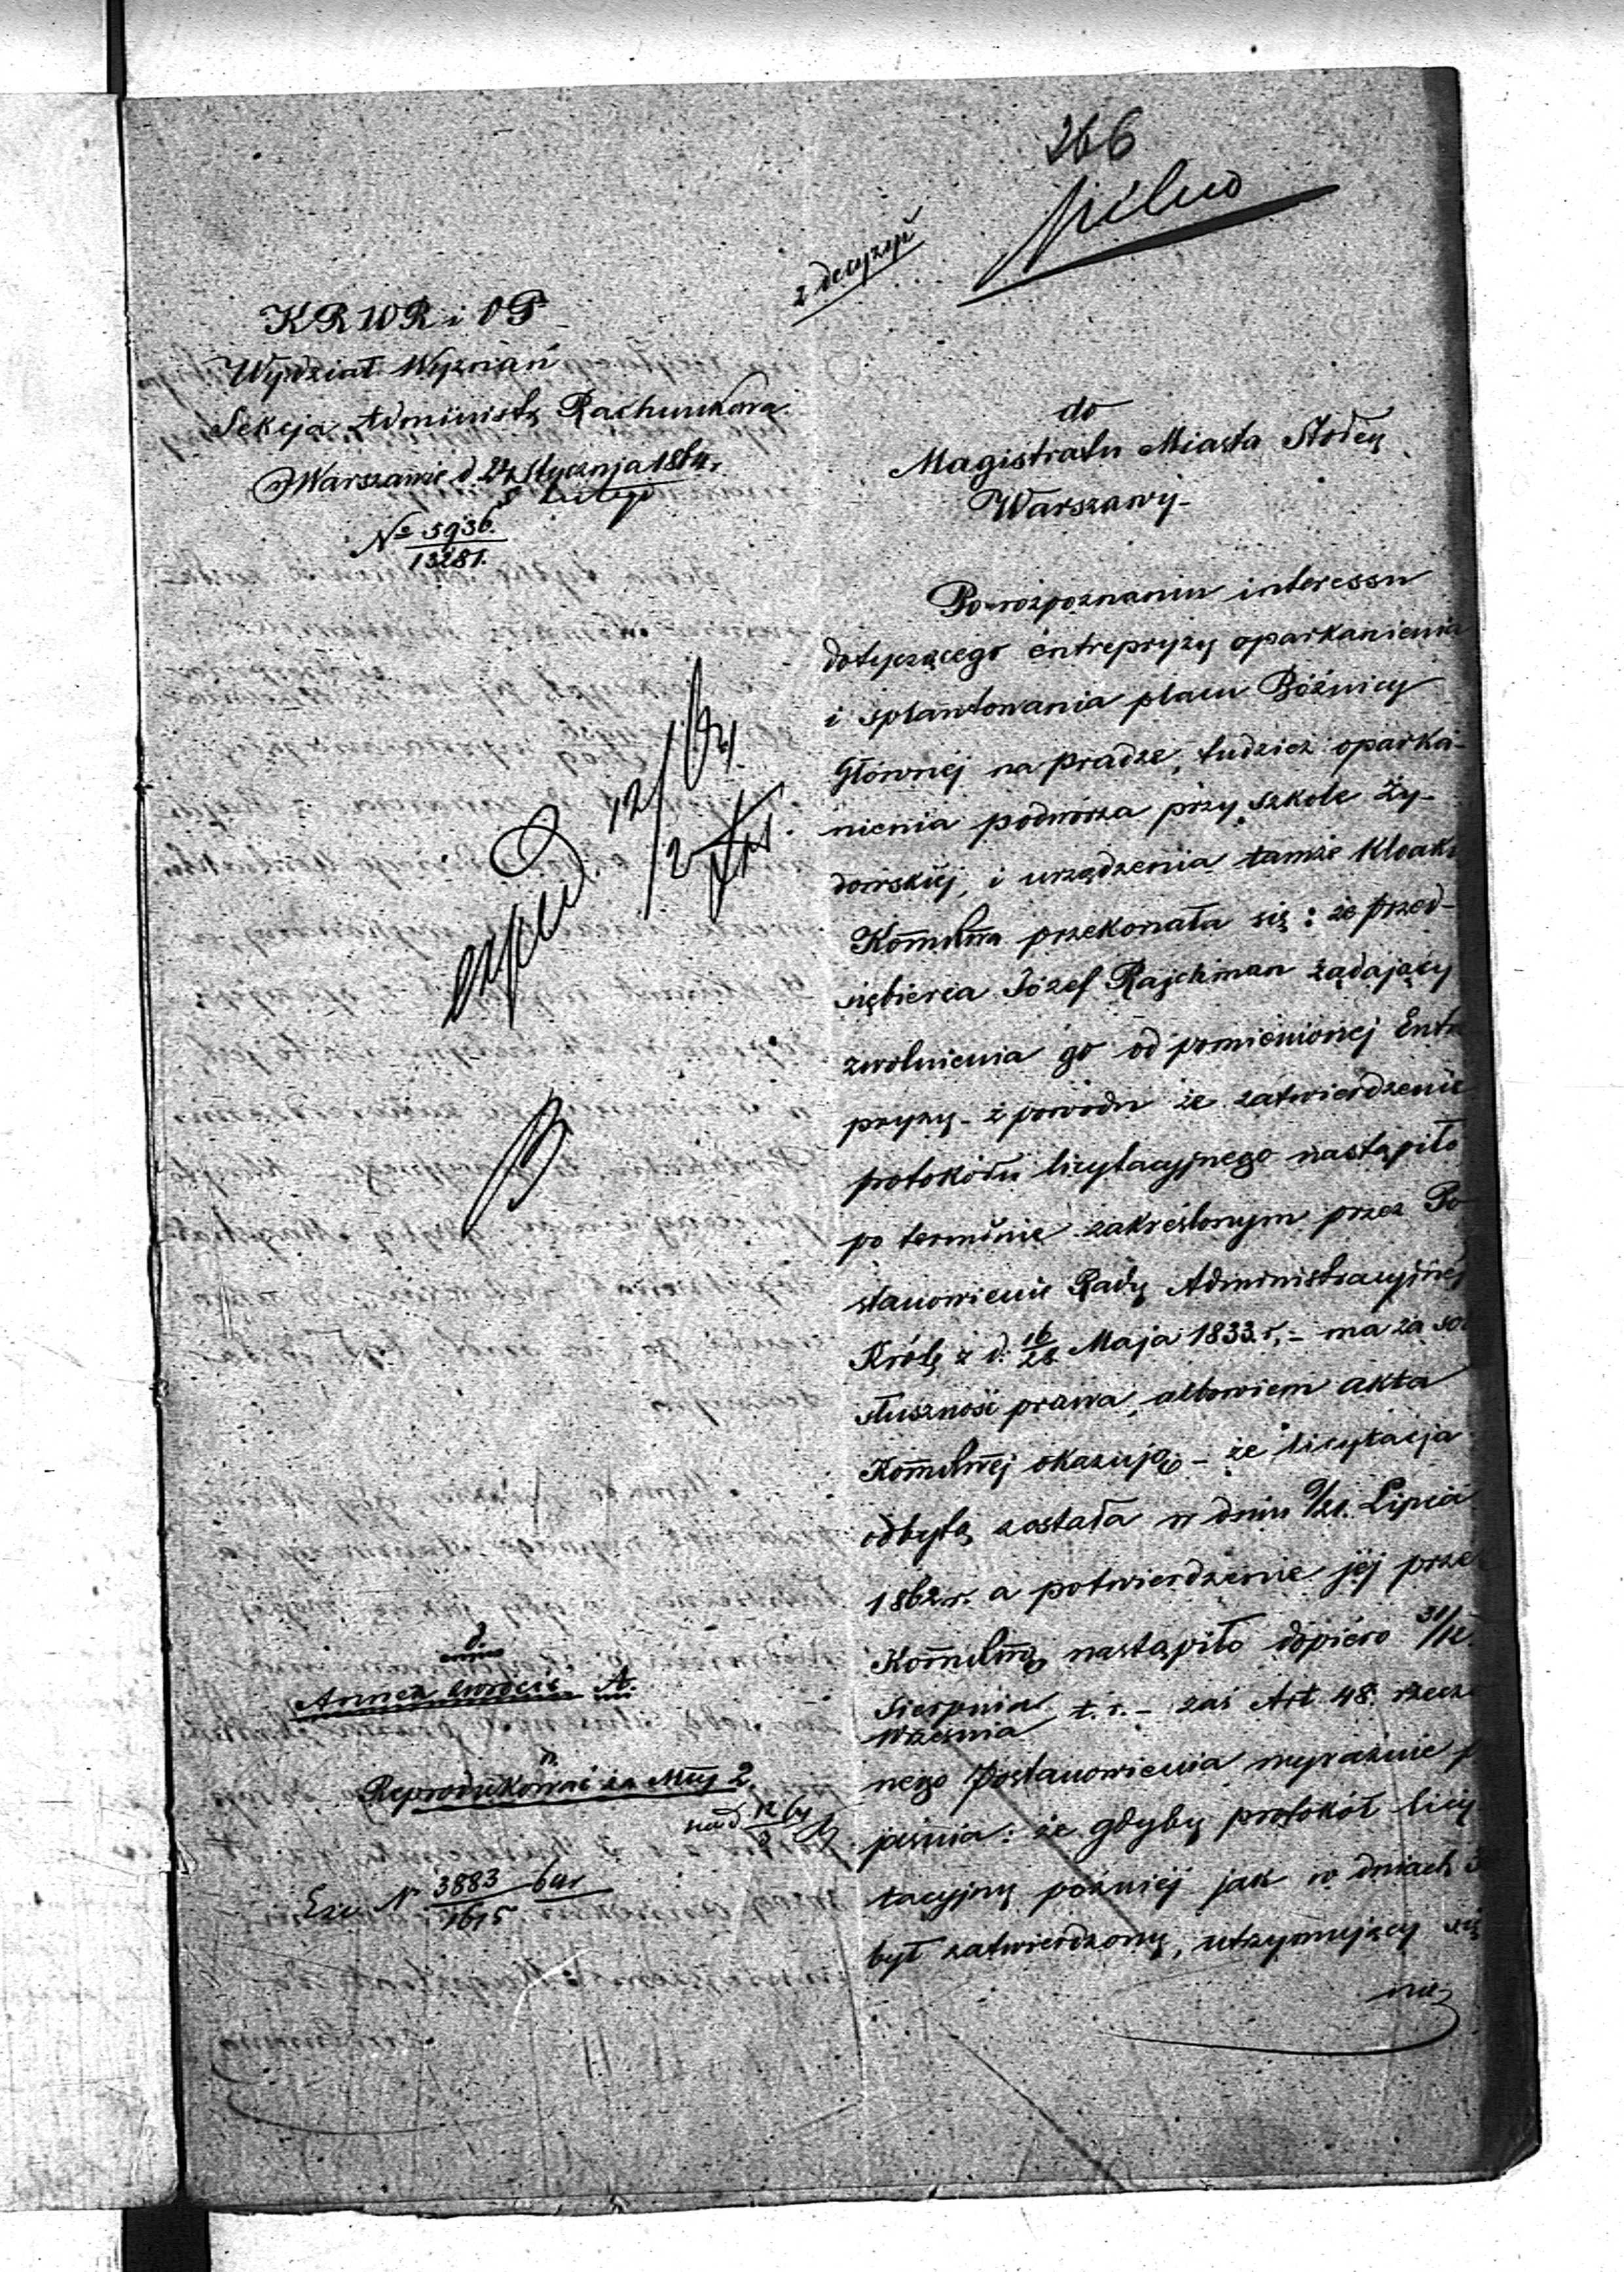 266
pilno
z decyzyi
KRWR i OP
Wydział Wyznań
Sekcja Administ. Rachunkowa.
w Warszawie d. 24 Stycznia 1864 r.
5 Lutego
No 5936
13281.
do
Magistratu Miasta Stołecz.
Warszawy-
Po rozpoznaniu interessu
dotyczącego entrepryzy oparkanienia
i splantowania placu Bóżnicy
Głównej na Pradze, tudzież oparka-
nienia podwórza przy szkole Ży-
dowskiej, i urządzenia tamże kloaki
Kommissa przekonała się: że przed-
siębierca Józef Rajchman żądający
zwolnienia go od pomienionej Entre
pryzy - z powodu że zatwierdzenie
protokółu licytacyjnego nastąpiło
po terminie zakreślonym przez Po
stanowienie Rady Administracyjnej
Króle. z d. 16/28 Maja 1833. r, - ma za sobą
słuszność prawa, albowiem akta
Kommissnej okazują - że licytacja
odbytą została w dniu 9/21. Lipca
1862 r. a potwierdzenie jej przez
Kommissę nastąpiło dopiero 31/12.
Sierpnia
Września t. r. - zaś Art. 48. rzeczo
nego Postanowienia wyraźnie
jaśnia: że gdyby protokół licy
tacyjny później jak w dniach
był zatwierdzony, utrzymujący się
nie
exped 12/2 64.
Annexa zwrócić
Reprodukować za Mcy 2.
No 3883
1615